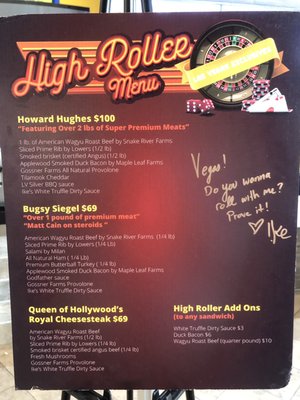 High Roller
Menu
LAS VEGAS EXCLUSIVE
Howard Hughes $100
"Featuring Over 2 lbs of Super Premium Meats"
1 lb. of American Wagyu Roast Beef by Snake River Farms
Sliced Prime Rib by Lowers (1/2 lb)
Smoked brisket (certified Angus) (1/2 lb)
Applewood Smoked Duck Bacon by Maple Leaf Farms
Gossner Farms All Natural Provolone
Tillamook Cheddar
LV Silver BBQ sauce
Ike's White Truffle Dirty Sauce
Bugsy Siegel $69
"Over 1 pound of premium meat"
"Matt Cain on steroids "
American Wagyu Roast Beef by Snake River Farms (1/4 lb)
Sliced Prime Rib by Lowers (1/4 Lb)
Salami by Milan
All Natural Ham ( 1/4 Lb)
Premium Butterball Turkey ( 1/4 lb)
Applewood Smoked Duck Bacon by Maple Leaf Farms
Godfather sauce
Gossner Farms Provolone
Ike's White Truffle Dirty Sauce
Queen of Hollywood's
Royal Cheesesteak $69
American Wagyu Roast Beef
by Snake River Farms (1/2 lb)
Sliced Prime Rib by Lowers (1/4 lb)
Smoked brisket certified angus beef (1/4 lb)
Fresh Mushrooms
Gossner Farms Provolone
Ike's White Truffle Dirty Sauce
High Roller Add Ons
(to any sandwich)
White Truffle Dirty Sauce $3
Duck Bacon $6
Wagyu Roast Beef (quarter pound) $10
Vegas!
Do you wanna
roll with me?
Prove it!
Ike